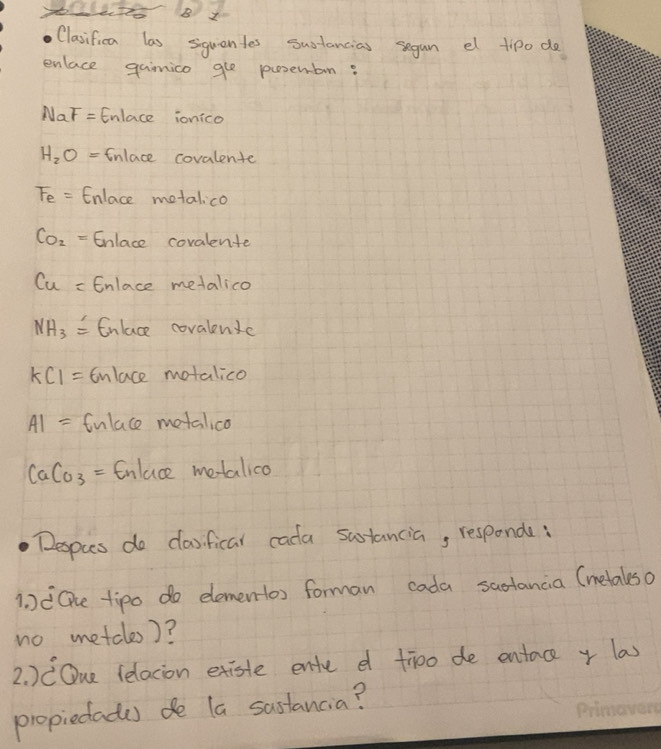 B 1
• Clasifica las siguientes sustancias segun el tipo de
enlace quimico que presentan :
NaF = Enlace ionico
H₂O = Enlace covalente
Fe = Enlace metalico
CO₂ = Enlace covalente
Cu = Enlace metalico
NH₃ = Enlace covalente
KCl = Enlace metalico
Al = Enlace metalico
CaCo₃ = Enlace metalico
• Despues de clasificar cada sustancia, responde:
1.) ¿Que tipo de elementos forman cada sustancia (metales o
no metales)?
2.) ¿Que relacion existe ente el tipo de enlace y las
propiedades de la sustancia?
Primavera